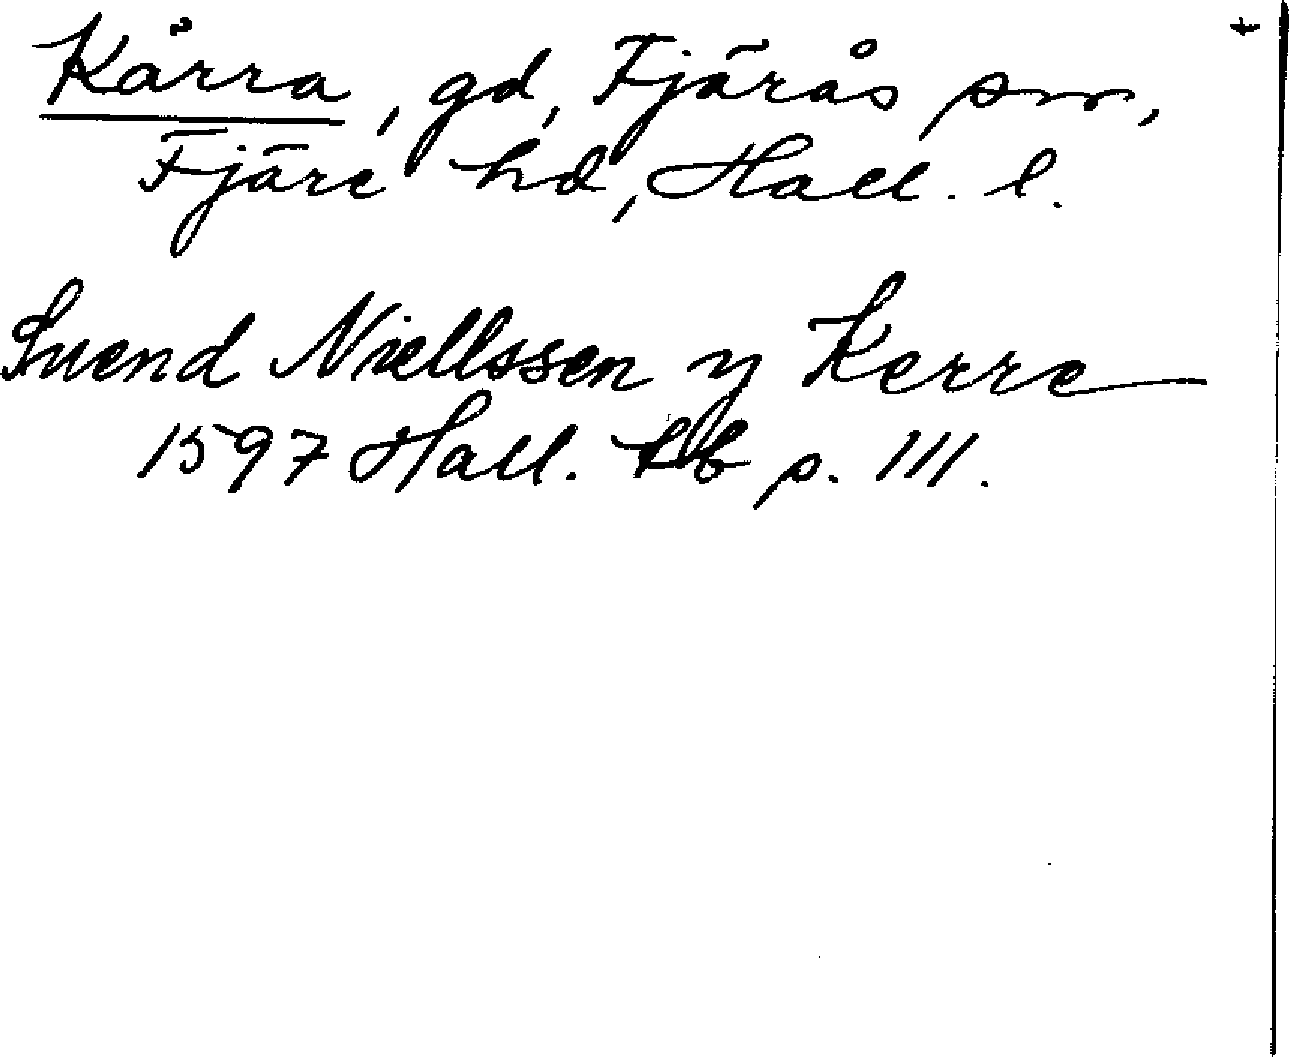 Kårra, gd, Fjärås sn,
Fjäre hd, Hall. l.
Suend Niellssen y Kerre
1597 Hall. lb p. 111.